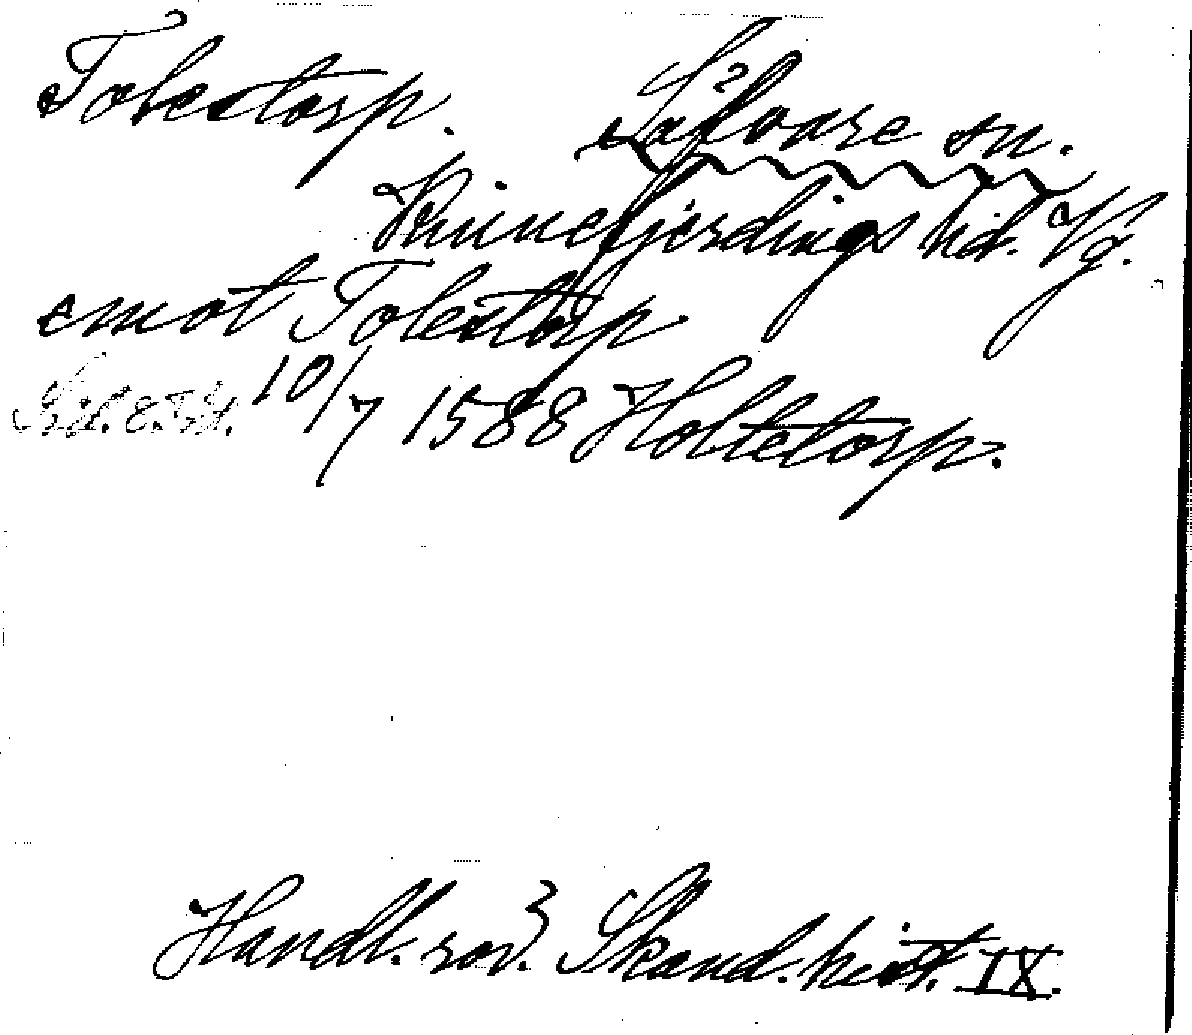 Tolestorp. Sävare sn.
Kinnefjerdings hd. Vg.
emot Tolestorp
10/7 1588 Holtetorp.
Handl. rör. Skand. hist. IX.